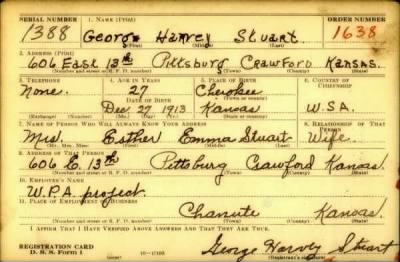 SERIAL NUMBER 1. NAME (Print) ORDER NUMBER
1388 George Harvey Stuart 1638
(First) (Middle) (Last)
2. ADDRESS (Print)
606 East 13th Pittsburg Crawford Kansas.
(Number and street or R. F. D. number) (Town) (County) (State)
3. TELEPHONE 4. AGE IN YEARS 5. PLACE OF BIRTH 6. COUNTRY OF CITIZENSHIP
None. 27 Cherokee
DATE OF BIRTH (Town or county)
Dec 27 1913 Kansas U.S.A.
(Exchange) (Number) (Mo.) (Day) (Yr.) (State or country)
7. NAME OF PERSON WHO WILL ALWAYS KNOW YOUR ADDRESS 8. RELATIONSHIP OF THAT PERSON
Mrs Esther Emma Stuart Wife
(Mr., Mrs., Miss) (First) (Middle) (Last)
9. ADDRESS OF THAT PERSON
606 E. 13th Pittsburg Crawford Kansas
(Number and street or R. F. D. number) (Town) (County) (State)
10. EMPLOYER'S NAME
W.P.A. project
11. PLACE OF EMPLOYMENT OR BUSINESS
Chanute Kansas.
(Number and street or R. F. D. number) (Town) (County) (State)
I AFFIRM THAT I HAVE VERIFIED ABOVE ANSWERS AND THAT THEY ARE TRUE.
REGISTRATION CARD
D. S. S. Form 1 George Harvey Stuart
(Registrant's signature)